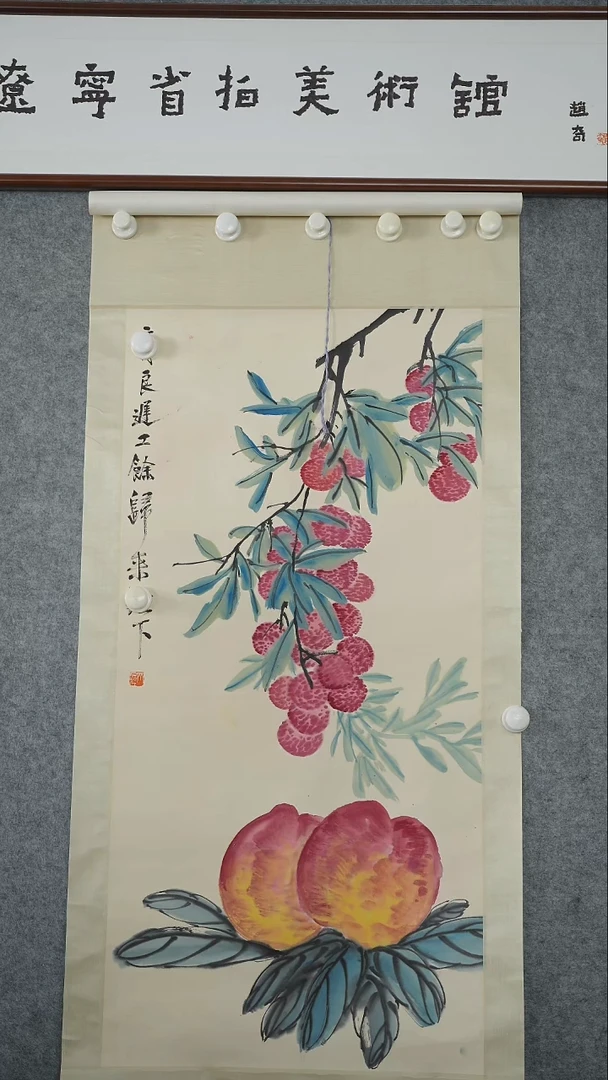 遼寧省拍美術館
趙奇
良遲工餘歸來
下